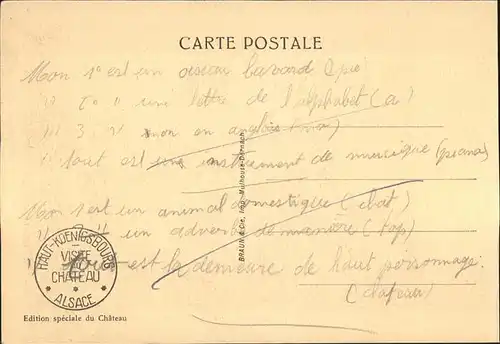 CARTE POSTALE
Mon 1er est un oiseau bavard (pie)
" 2e " une lettre de l'alphabet (a)
" 3 " non en anglais (no)
" tout est un instrument de musique (piano)
Mon 1 est un animal domestique (chat)
" 2 " un adverbe de manière
" tout est la demeure de haut personnage.
(chateau)
BRAUN & Cie, Imp. Mulhouse-Dornach
HAUT-KOENIGSBOURG
VISITE
CHÂTEAU
* ALSACE *
Edition spéciale du Château